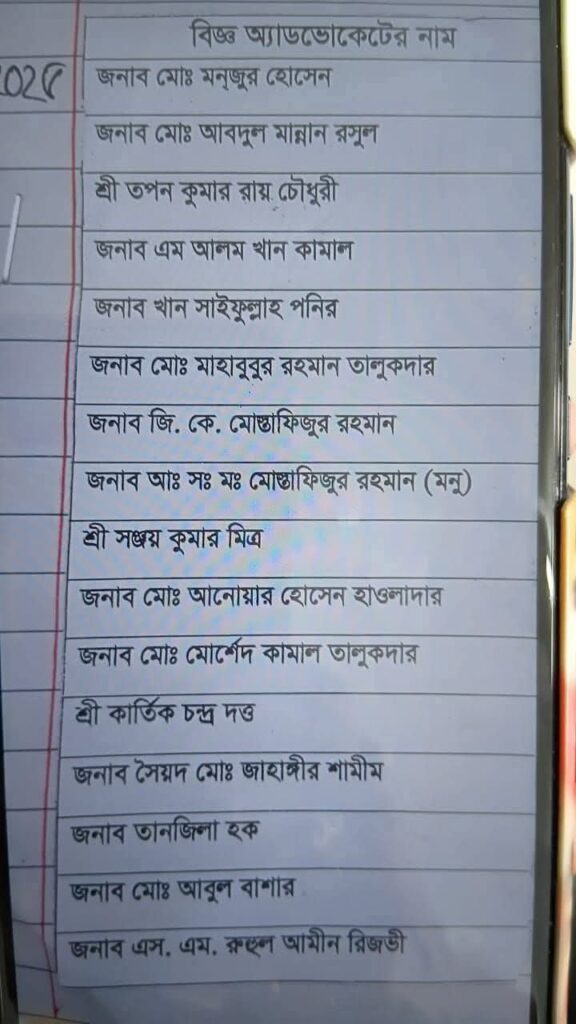 বিজ্ঞ অ্যাডভোকেটের নাম
জনাব মোঃ মনজুর হোসেন
জনাব মোঃ আবদুল মান্নান রসুল
শ্রী তপন কুমার রায় চৌধুরী
জনাব এম আলম খান কামাল
জনাব খান সাইফুল্লাহ পনির
জনাব মোঃ মাহাবুবুর রহমান তালুকদার
জনাব জি. কে. মোস্তাফিজুর রহমান
জনাব আঃ সঃ মঃ মোস্তাফিজুর রহমান (মনু)
শ্রী সঞ্জয় কুমার মিত্র
জনাব মোঃ আনোয়ার হোসেন হাওলাদার
জনাব মোঃ মোর্শেদ কামাল তালুকদার
শ্রী কার্তিক চন্দ্র দত্ত
জনাব সৈয়দ মোঃ জাহাঙ্গীর শামীম
জনাব তানজিলা হক
জনাব মোঃ আবুল বাশার
জনাব এস. এম. রুহুল আমীন রিজভী